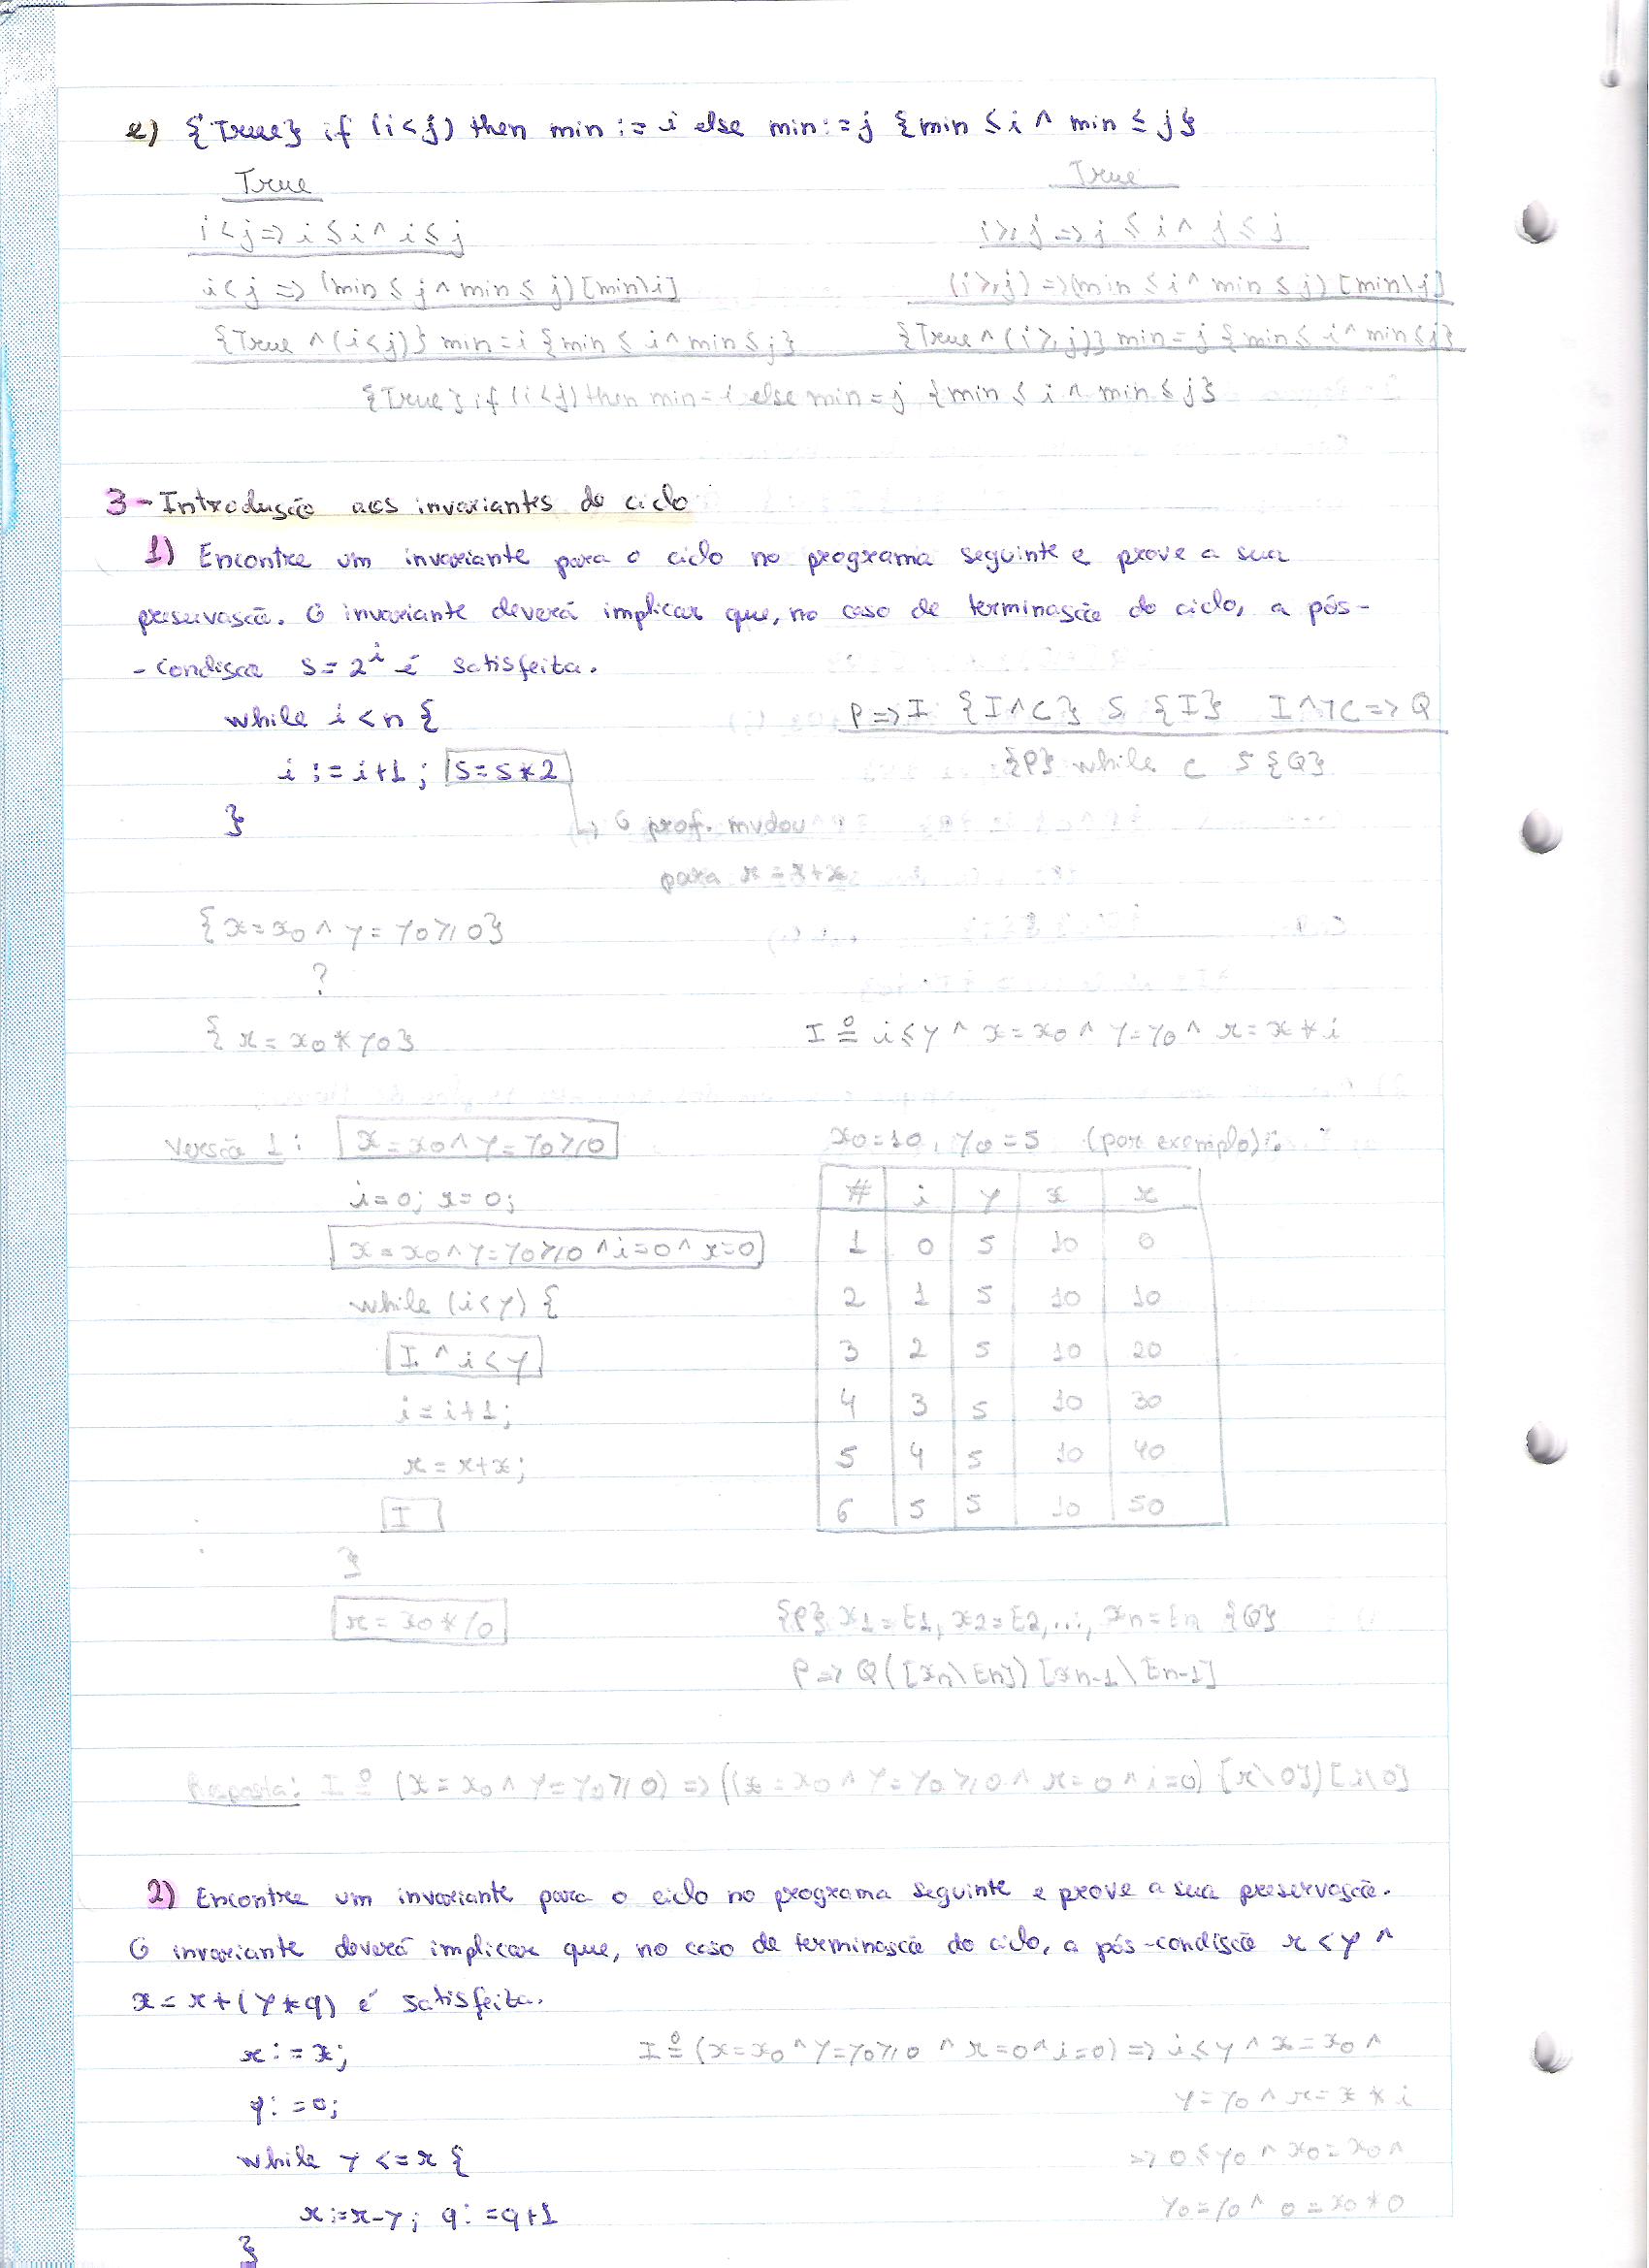 e) {True} if (i<j) then min:=i else min:=j {min ≤ i ^ min ≤ j}
True
True
i<j => i ≤ i ^ i ≤ j
i≥j => j ≤ i ^ j ≤ j
i<j => (min ≤ j ^ min ≤ j) [min\i]
(i≥j) => (min ≤ i ^ min ≤ j) [min\j]
{True ^ (i<j)} min=i {min ≤ i ^ min ≤ j}
{True ^ (i≥j)} min=j {min ≤ i ^ min ≤ j}
{True} if (i<j) then min=i else min=j {min ≤ i ^ min ≤ j}
3 - Introdução aos invariantes de ciclo
1) Encontre um invariante para o ciclo no programa seguinte e prove a sua
preservação. O invariante deverá implicar que, no caso de terminação do ciclo, a pós-
-condição s = 2^i é satisfeita.
while i < n {
i := i+1; s=s*2
}
P => I {I ^ C} S {I} I ^ ¬C => Q
{P} while C S {Q}
↳ O prof. mudou
para r = r+x
{x=x0 ^ y=y0≥0}
?
{r = x0*y0}
I ≙ i ≤ y ^ x=x0 ^ y=y0 ^ r = x * i
Versão 1:
x=x0 ^ y=y0≥0
i=0; r=0;
x=x0 ^ y=y0≥0 ^ i=0 ^ r=0
while (i<y) {
I ^ i<y
i = i+1;
r = r+x;
I
}
r = x0*y0
x0=10, y0=5 (por exemplo):
# i y x r
1 0 5 10 0
2 1 5 10 10
3 2 5 10 20
4 3 5 10 30
5 4 5 10 40
6 5 5 10 50
{P} x1=E1, x2=E2, ..., xn=En {Q}
P => Q([xn\En]) [xn-1\En-1]
Resposta: I ≙ (x=x0 ^ y=y0≥0) => ((x=x0 ^ y=y0≥0 ^ r=0 ^ i=0) [r\0]) [i\0]
2) Encontre um invariante para o ciclo no programa seguinte e prove a sua preservação.
O invariante deverá implicar que, no caso de terminação do ciclo, a pós-condição r < y ^
x = r+(y*q) é satisfeita.
r := x;
q := 0;
while y <= r {
r := r-y; q := q+1
}
I ≙ (x=x0 ^ y=y0≥0 ^ r=0 ^ i=0) => i ≤ y ^ x=x0 ^
y=y0 ^ r = x * i
=> 0 ≤ y0 ^ x0=x0 ^
y0=y0 ^ 0 = x0*0